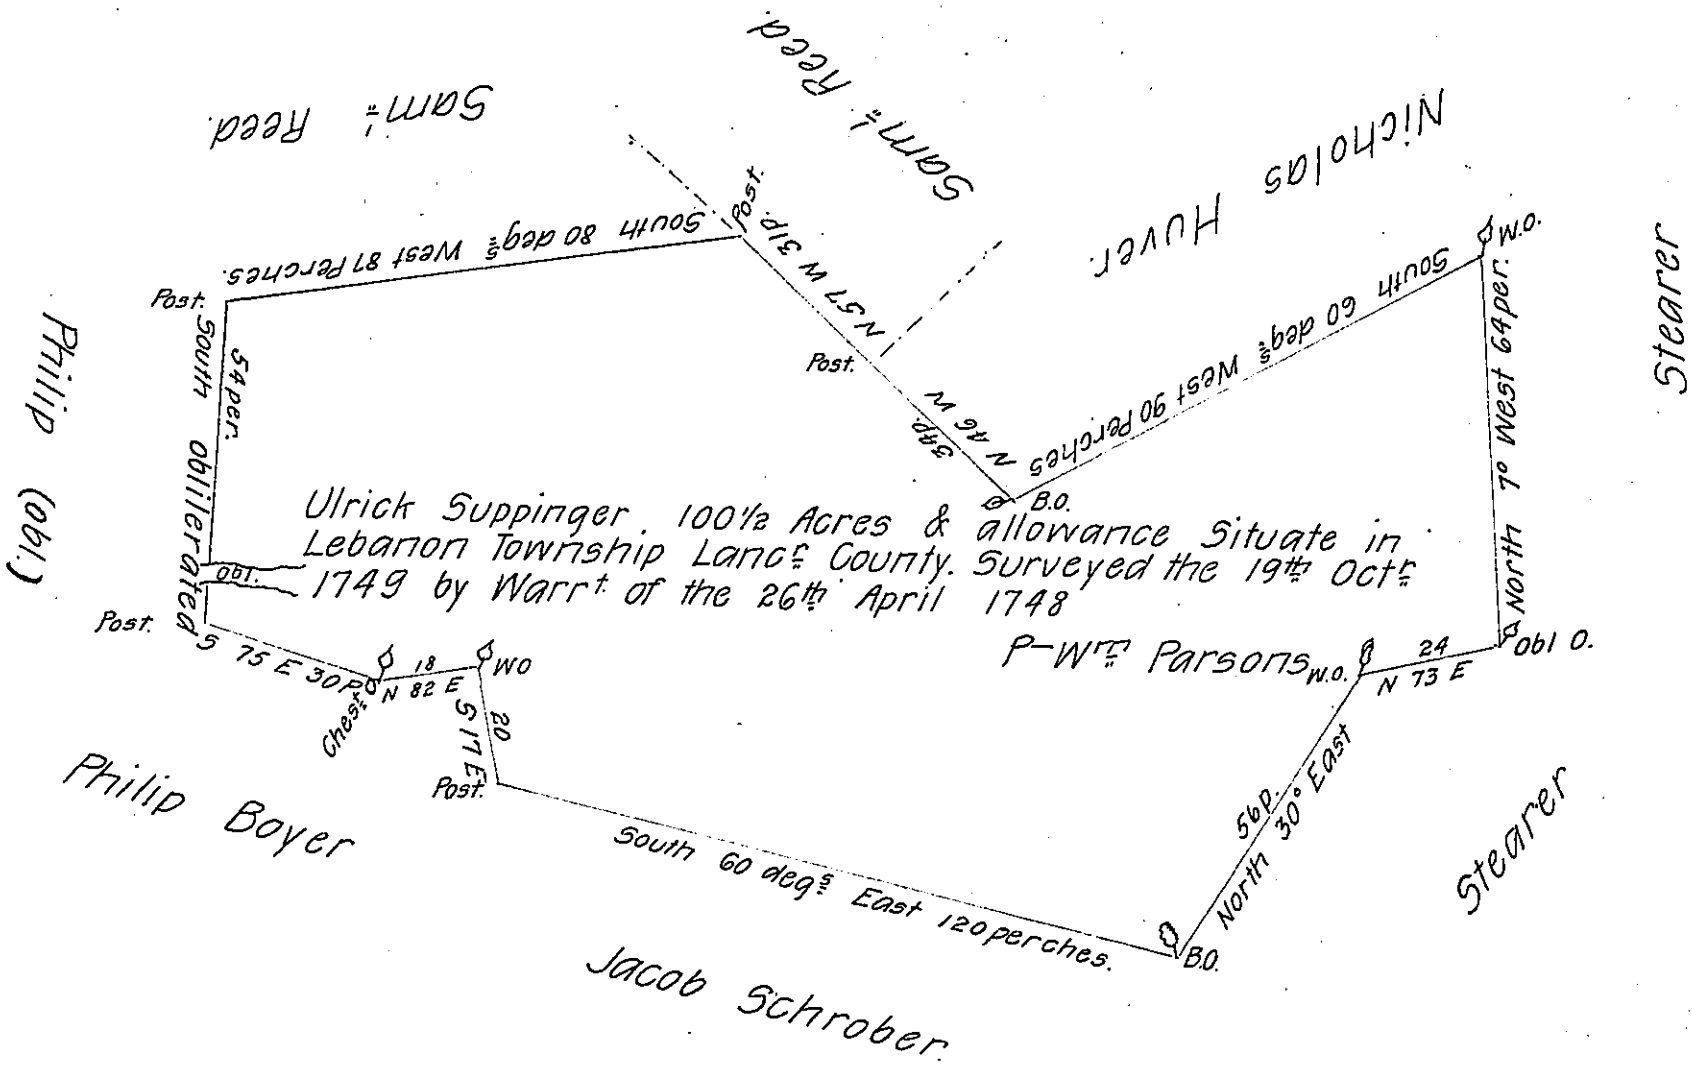 Sam.l Reed.
Sam.l Reed.
Nicholas Huver.
Stearer
Post.
South 80 deg.s West 87 Perches.
N 57 W 31p.
Post.
Post.
N 46 W
34p.
B.O.
South 60 deg.s West 90 Perches
W.O.
North 7° West 64 per.
Philip (obl.)
South obliterated
54 per.
Obl.
Ulrick Suppinger. 100 1/2 Acres & allowance Situate in
Lebanon Township Lanc.r County. Surveyed the 19th Oct.r
1749 by Warr.t of the 26th April 1748
P-Wm Parsons
Post.
S 75 E 30 P.
Chest.n
18
N 82 E
WO
S 17 E
20
Post.
W.O.
24
N 73 E
Obl O.
56p.
North 30° East
South 60 deg.s East 120 perches.
B.O.
Philip Boyer
Jacob Schrober.
Stearer